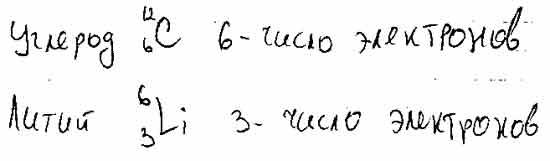 Углерод ¹²₆C 6-число электронов
Литий ⁶₃Li 3-число электронов